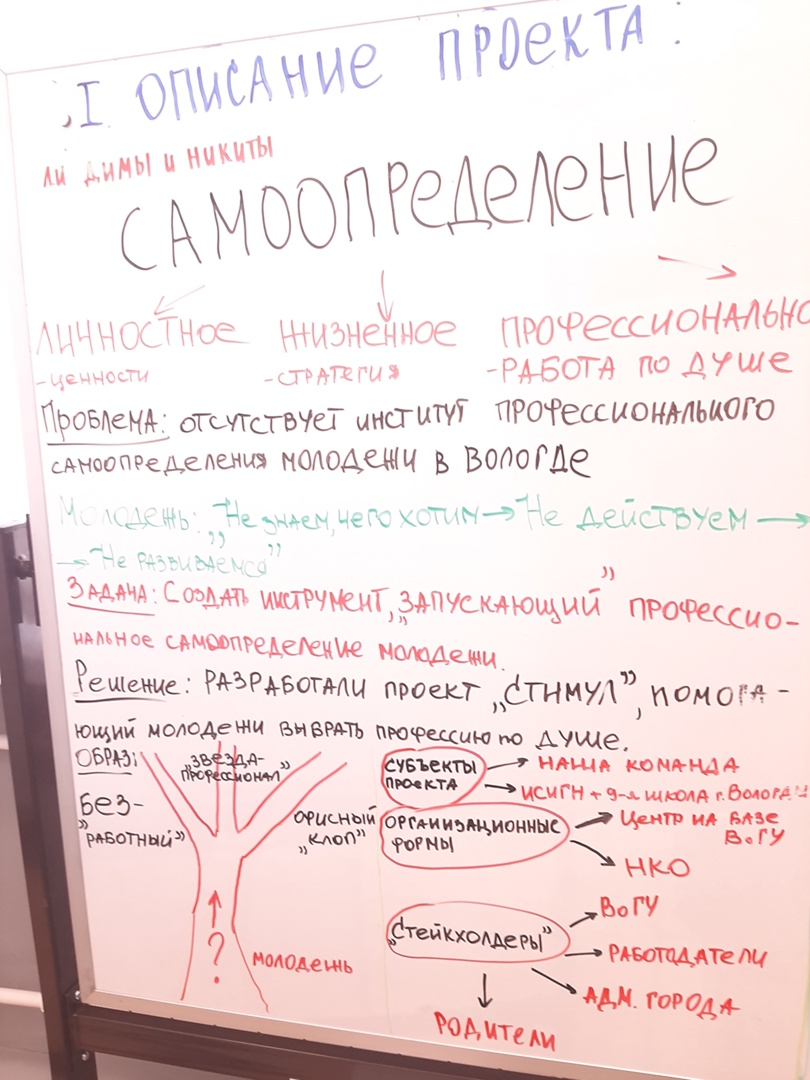 I. ОПИСАНИЕ ПРОЕКТА:
ЛИ ДИМЫ И НИКИТЫ
САМООПРЕДЕЛЕНИЕ
ЛИЧНОСТНОЕ ЖИЗНЕННОЕ ПРОФЕССИОНАЛЬНО
-ЦЕННОСТИ -СТРАТЕГИЯ -РАБОТА ПО ДУШЕ
ПРОБЛЕМА: ОТСУТСТВУЕТ ИНСТИТУТ ПРОФЕССИОНАЛЬНОГО
САМООПРЕДЕЛЕНИЯ МОЛОДЕЖИ В ВОЛОГДЕ
МОЛОДЕЖЬ: „НЕ ЗНАЕМ, ЧЕГО ХОТИМ → НЕ ДЕЙСТВУЕМ →
→ НЕ РАЗВИВАЕМСЯ”
ЗАДАЧА: СОЗДАТЬ ИНСТРУМЕНТ, „ЗАПУСКАЮЩИЙ” ПРОФЕССИО-
НАЛЬНОЕ САМООПРЕДЕЛЕНИЕ МОЛОДЕЖИ.
РЕШЕНИЕ: РАЗРАБОТАЛИ ПРОЕКТ „СТИМУЛ”, ПОМОГА-
ЮЩИЙ МОЛОДЕЖИ ВЫБРАТЬ ПРОФЕССИЮ ПО ДУШЕ.
ОБРАЗ:
„ЗВЕЗДА-
ПРОФЕССИОНАЛ”
БЕЗ-
„РАБОТНЫЙ”
ОФИСНЫЙ
„КЛОП”
?
МОЛОДЕЖЬ
СУБЪЕКТЫ
ПРОЕКТА
→ НАША КОМАНДА
→ ИСИГН + 9-Я ШКОЛА Г. ВОЛОГДЫ
ОРГАНИЗАЦИОННЫЕ
ФОРМЫ
→ ЦЕНТР НА БАЗЕ
ВоГУ
НКО
„СТЕЙКХОЛДЕРЫ”
ВоГУ
РАБОТОДАТЕЛИ
АДМ. ГОРОДА
РОДИТЕЛИ